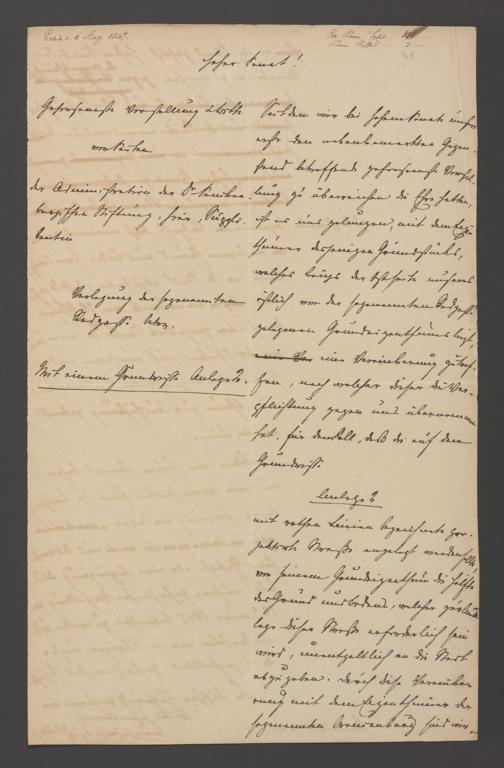 Hoher Senat!
Gehorsamste Vorstellung & Bitte
von Seiten
der Administration der Dr Senckenbergischen Stiftung, hier,
Verlegung der sogenannten
Radgasse betr.
Mit einem Grundrisse Anlage 2.
Seitdem wir bei Hohem Senate unsere
erste den nebenbemerkten Gegenstand
betreffend gehorsamste Vorstellung
zu überreichen die Ehre hatten,
ist es uns gelungen, mit dem Eigenthümer
desjenigen Grundstücks,
welches längs der Ostseite unseres
östlich von der sogenannten Radgasse
gelegenen Grundeigenthums liegt,
eine Vereinbarung zu treffen,
nach welcher dieser die Verpflichtung
gegen uns übernommen
hat, für den Fall, daß die auf dem
Grundrisse
Anlage 2
mit rothen Linien bezeichnete projektirte
Straße angelegt werden sollte,
von seinem Grundeigenthum die Hälfte
des Grund und Bodens, welcher zur Anlage
dieser Straße erforderlich sein
wird, unentgeltlich an die Stadt
abzugeben. Durch diese Vereinbarung
mit dem Eigenthümer der
sogenannten